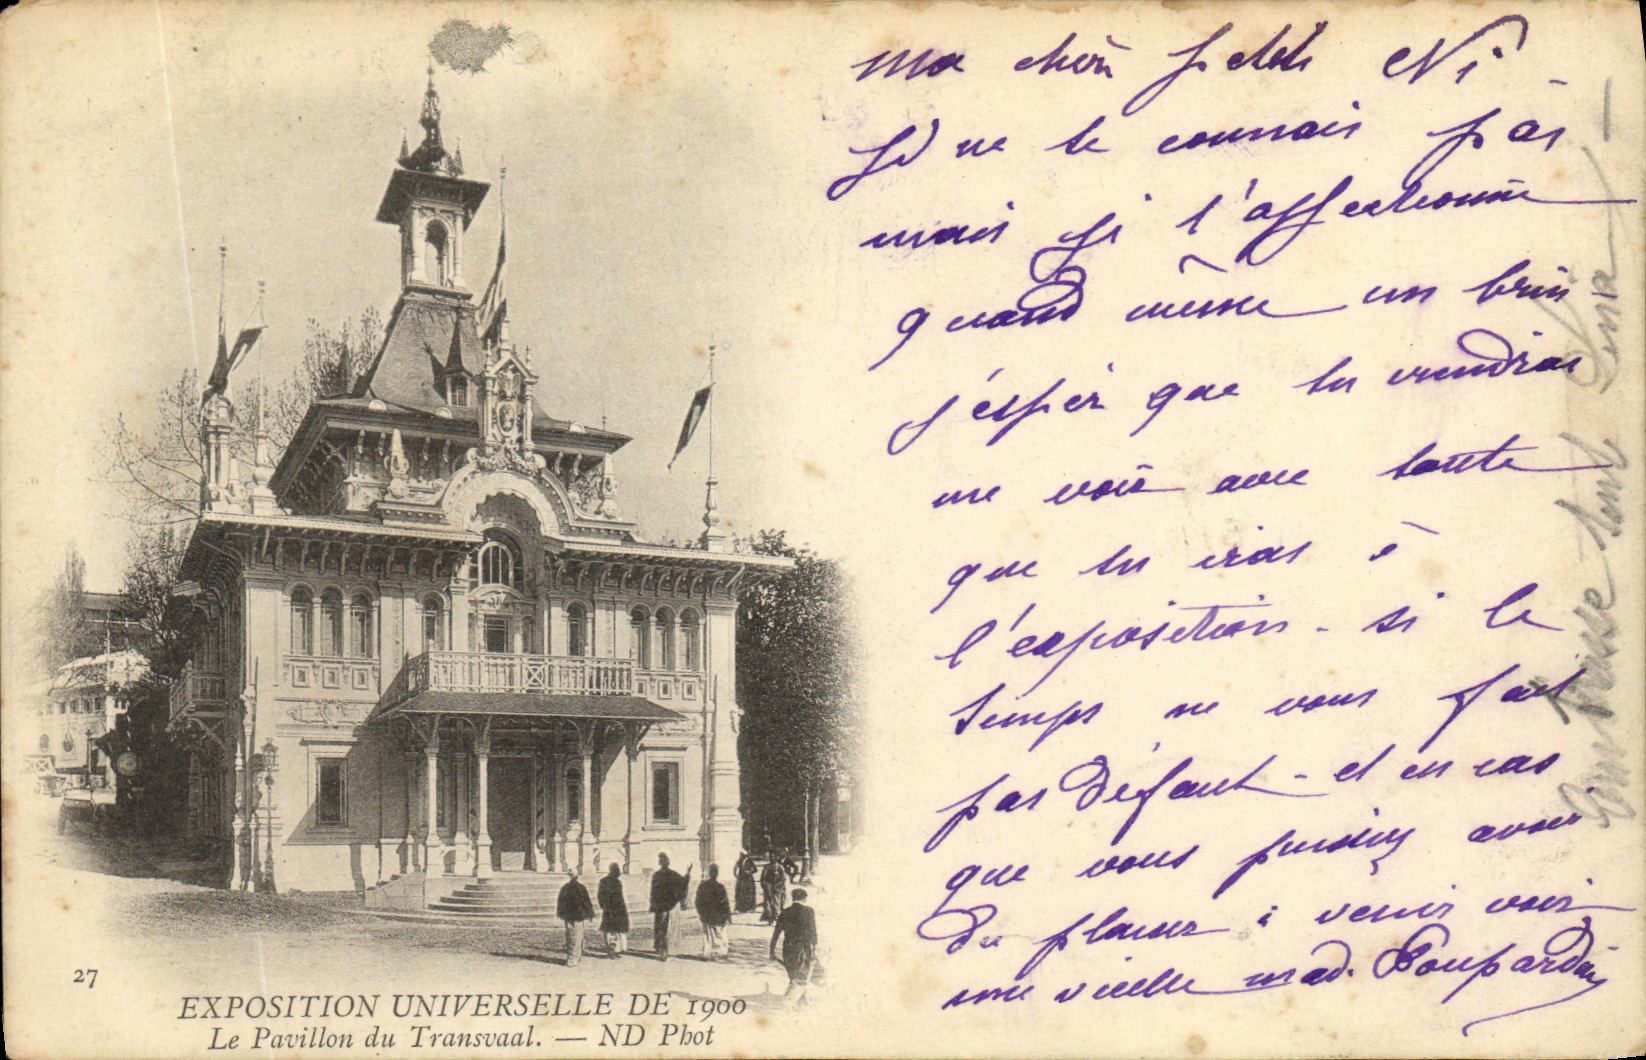 27
EXPOSITION UNIVERSELLE DE 1900
Le Pavillon du Transvaal. — ND Phot
ma chère petite Ni
Je ne te connais pas
mais je t'affectionne
quand même un brin
j'espère que tu viendras
me voir avec tante
que tu iras à
l'exposition - si le
temps ne vous fait
pas défaut - et en cas
que vous puissiez avoir
du plaisir à venir voir
une vieille mad. Poupardin